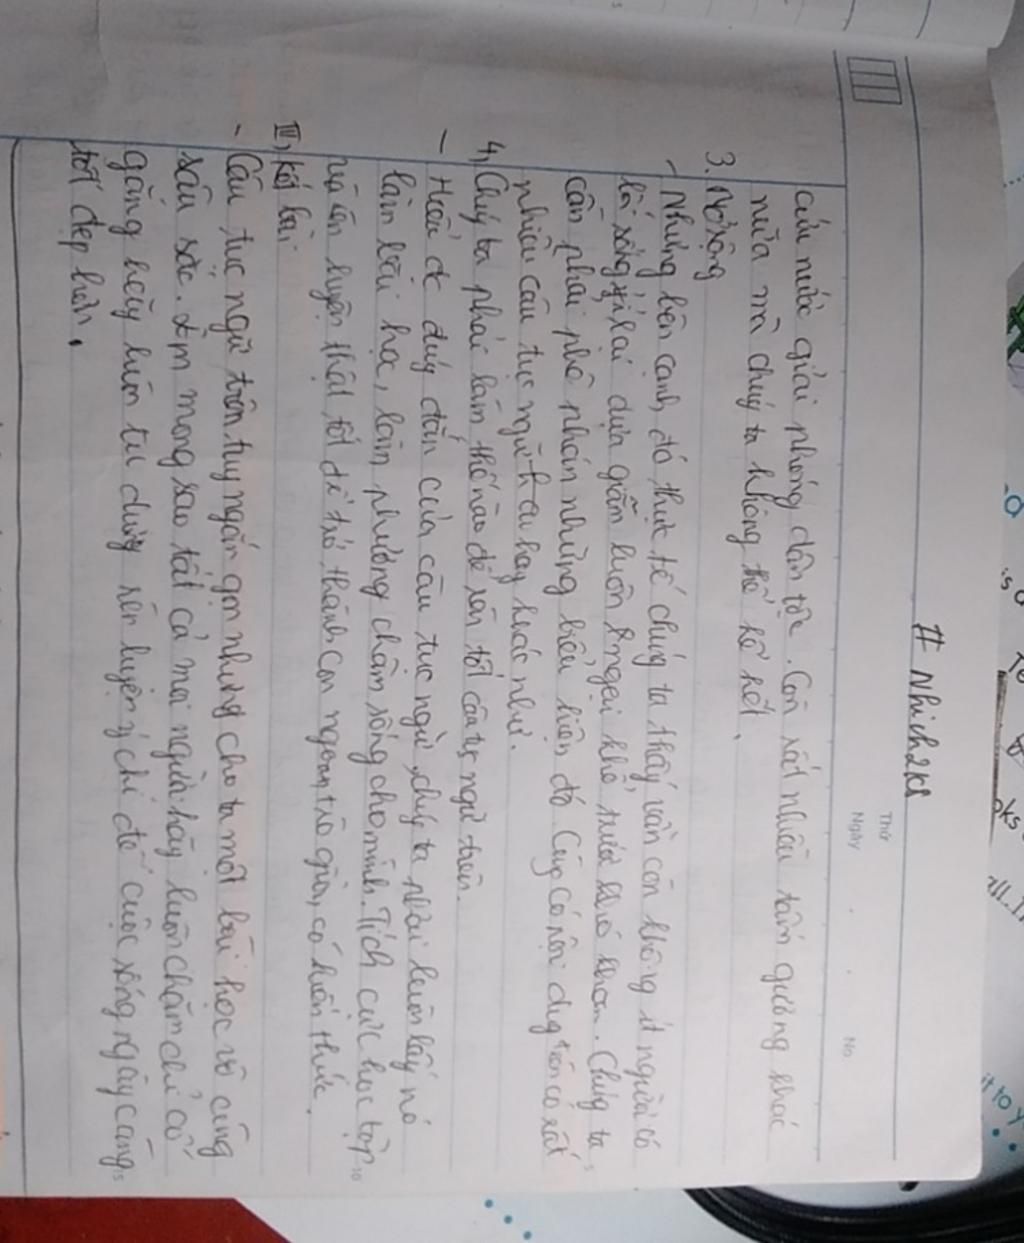 # Nhich2k8
Thứ
Ngày . . No
cứu nước giải phóng dân tộc. Còn rất nhiều tấm gương khác
nữa mà chúg ta không thể kể hết.
3. Mở rộng
- Nhưng bên cạnh đó thực tế chúng ta thấy vẫn còn không ít người có
lối sống ỷ lại dựa giẫm luôn ngại khổ trước khó khăn. Chúg ta
cần phải phê phán những biểu hiện đó. Cùg có nội dug trên có rất
nhiều câu tục ngữ hay khác như.
4, Chúg ta phải làm thế nào để rèn tốt câu tục ngữ trên.
- Hiểu đc đúg đắn của câu tục ngữ, chúg ta phải luôn lấy nó
làm bài học, làm phương châm sống cho mình. Tích cực học tập
và rèn luyện thật tốt để trở thành con ngoan, trò giỏi, có kiến thức.
III, Kết bài
- Câu tục ngữ trên tuy ngắn gọn nhưng cho ta một bài học vô cùng
sâu sắc. Em mong sao tất cả mọi người hãy luôn chăm chỉ cố
gắng hãy luôn tu dưỡng rèn luyện ý chí để cuộc sống ngày càng
tốt đẹp hơn.